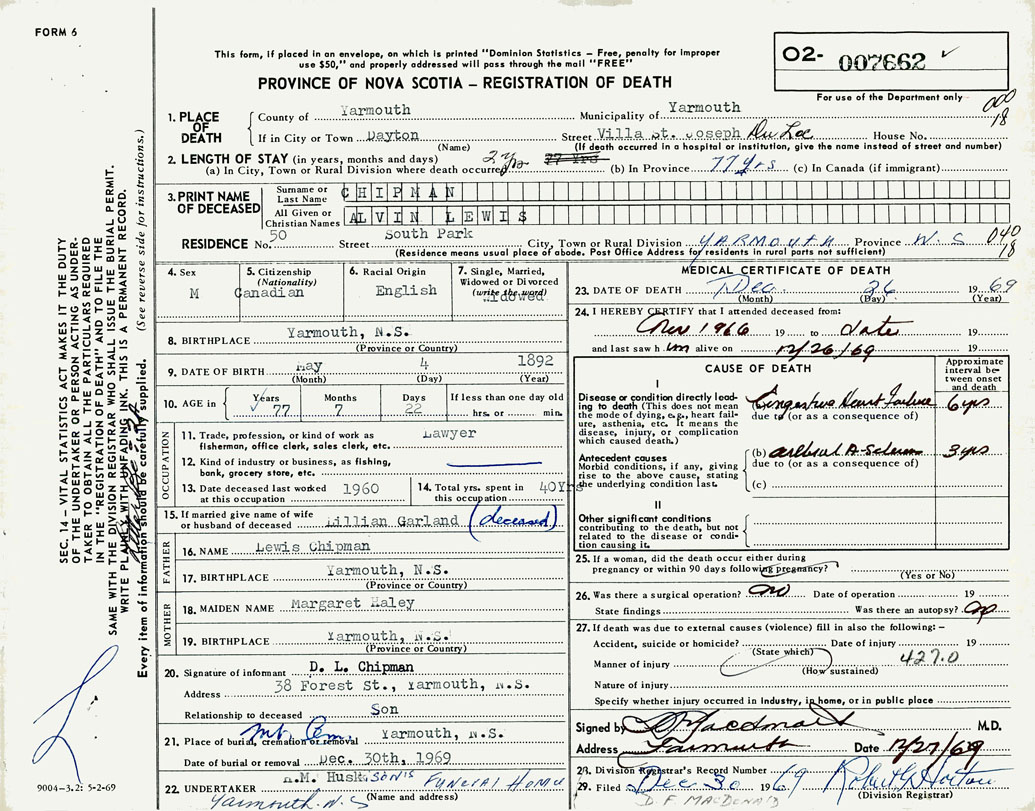 FORM 6
This form, if placed in an envelope, on which is printed "Dominion Statistics – Free, penalty for improper
use $50," and properly addressed will pass through the mail "FREE"
PROVINCE OF NOVA SCOTIA – REGISTRATION OF DEATH
O2- 007662 ✓
For use of the Department only
000
18
SEC. 14 – VITAL STATISTICS ACT MAKES IT THE DUTY
OF THE UNDERTAKER OR PERSON ACTING AS UNDER-
TAKER TO OBTAIN ALL THE PARTICULARS REQUIRED
IN THE "REGISTRATION OF DEATH" AND TO FILE THE
SAME WITH THE DIVISION REGISTRAR WHO SHALL ISSUE THE BURIAL PERMIT.
WRITE PLAINLY WITH UNFADING INK. THIS IS A PERMANENT RECORD.
Every item of information should be carefully supplied. (See reverse side for instructions.)
1. PLACE OF DEATH
County of Yarmouth Municipality of Yarmouth
If in City or Town Dayton Street Villa St. Joseph Du Lac House No.
(Name) (If death occurred in a hospital or institution, give the name instead of street and number)
2. LENGTH OF STAY (in years, months and days)
(a) In City, Town or Rural Division where death occurred 2 yrs 77 Yrs (b) In Province 77 yrs (c) In Canada (if immigrant)
3. PRINT NAME OF DECEASED
Surname or Last Name CHIPMAN
All Given or Christian Names ALVIN LEWIS
RESIDENCE No. 50 Street South Park City, Town or Rural Division YARMOUTH Province N.S 040
18
(Residence means usual place of abode. Post Office Address for residents in rural parts not sufficient)
4. Sex M
5. Citizenship (Nationality) Canadian
6. Racial Origin English
7. Single, Married, Widowed or Divorced (write the word) Widowed
8. BIRTHPLACE Yarmouth, N.S.
(Province or Country)
9. DATE OF BIRTH May 4 1892
(Month) (Day) (Year)
10. AGE Years Months Days If less than one day old
✓ 77 7 22 hrs. or min.
OCCUPATION
11. Trade, profession, or kind of work as fisherman, office clerk, sales clerk, etc. Lawyer
12. Kind of industry or business, as fishing, bank, grocery store, etc.
13. Date deceased last worked at this occupation 1960
14. Total yrs. spent in this occupation 40Yrs
15. If married give name of wife or husband of deceased Lillian Garland (deceased)
FATHER
16. NAME Lewis Chipman
17. BIRTHPLACE Yarmouth, N.S.
(Province or Country)
MOTHER
18. MAIDEN NAME Margaret Haley
19. BIRTHPLACE Yarmouth, N.S.
(Province or Country)
20. Signature of informant D. L. Chipman
Address 38 Forest St., Yarmouth, N.S.
Relationship to deceased Son
21. Place of burial, cremation or removal Mt. Cem. Yarmouth, N.S.
Date of burial or removal Dec. 30th, 1969
22. UNDERTAKER H.M. Huskson's Funeral Home
Yarmouth. N.S
(Name and address)
9004–3.2: 5-2-69
MEDICAL CERTIFICATE OF DEATH
23. DATE OF DEATH Dec. 26 1969
(Month) (Day) (Year)
24. I HEREBY CERTIFY that I attended deceased from:
1966 19 to date 19
and last saw him alive on 12/26/69 19
CAUSE OF DEATH
Approximate interval between onset and death
I
Disease or condition directly leading to death (This does not mean the mode of dying, e.g., heart failure, asthenia, etc. It means the disease, injury, or complication which caused death.)
(a) Congestive Heart Failure 6 yrs
due to (or as a consequence of)
Antecedent causes
Morbid conditions, if any, giving rise to the above cause, stating the underlying condition last.
(b) 3 yrs
due to (or as a consequence of)
(c)
II
Other significant conditions
contributing to the death, but not related to the disease or condition causing it.
25. If a woman, did the death occur either during pregnancy or within 90 days following pregnancy?
(Yes or No)
26. Was there a surgical operation? no Date of operation 19
State findings Was there an autopsy? no
27. If death was due to external causes (violence) fill in also the following: –
Accident, suicide or homicide? Date of injury 19
(State which)
Manner of injury 427.0
(How sustained)
Nature of injury
Specify whether injury occurred in Industry, in home, or in public place
Signed by Macdonald M.D.
Address Yarmouth Date 12/27/69
28. Division Registrar's Record Number
29. Filed Dec 30 1969 Robert G Horton
(Division Registrar)
D. F. MACDONALD